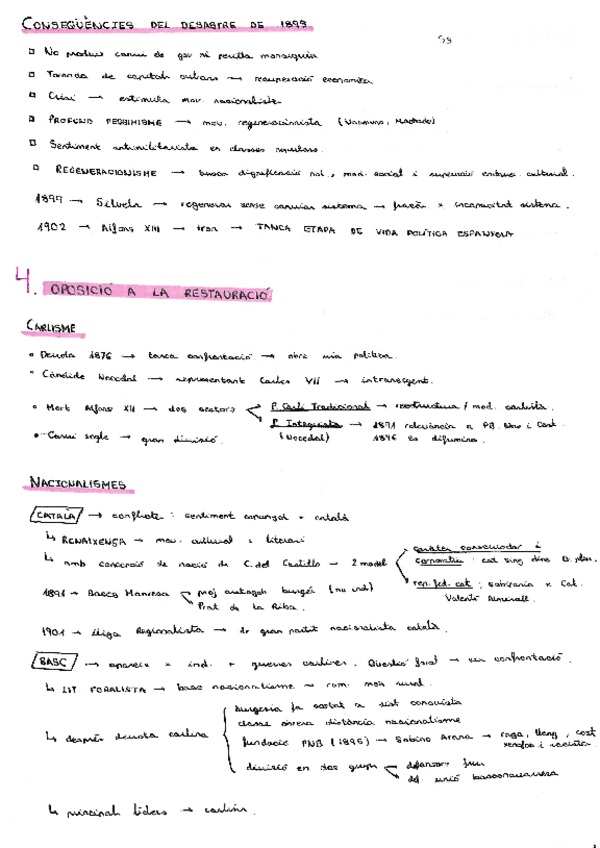 CONSEQÜÈNCIES DEL DESASTRE DE 1898
No produir canvi de gov ni perilla monarquia
de capitals cubans → recuperació econòmica
Crisi → estimula mov. nacionalistes
PROFUND PESSIMISME → mov. regeneracionista (Unamuno, Machado)
Sentiment antimilitarista en classes populars.
REGENERACIONISME → busca dignificació nal., mod. social i superació cultural.
1899 → Silvela → regenerar sense canviar sistema → fracàs x incapacitat sistema.
1902 → Alfons XIII → tron → TANCA ETAPA DE VIDA POLÍTICA ESPANYOLA
4. OPOSICIÓ A LA RESTAURACIÓ
CARLISME
Derrota 1876 → tanca confrontació → obre via política.
Càndido Nocedal → representant Carles VII → intransigent.
Mort Alfons XII → dos sectors P. Carlí Tradicional → reestructura / mod. carlista.
P. Integrista → a PB, Nav i Cat.
(Nocedal)
Canvi segle → gran divisió.
NACIONALISMES
CATALÀ → conflicte: sentiment espanyol + català
↳ RENAIXENÇA → mov. cultural i literari
↳ amb concepció de nació de C. del Castillo → 2 model
caràcter conservador i
: cat sing dins
rep. fed. cat : sobirania x Cat.
Valentí Almirall.
Bases Manresa proj autogob burgès (no ind)
Prat de la Riba.
1901 → Lliga Regionalista → 1r gran partit nacionalista català.
BASC → apareix x ind. + guerres carlines. Qüestió foral → confrontació.
↳ INT FORALISTA → base nacionalisme → rural.
↳ després derrota carlina
burgesia fa costat a sist canovista
classe obrera distància nacionalisme
fundació PNB (1895) → Sabino Arana → raça, lleng, cost
xenofob i racista
divisió en dos grups defensors furs
def. unió basconavarresa
↳ principals líders → carlins.